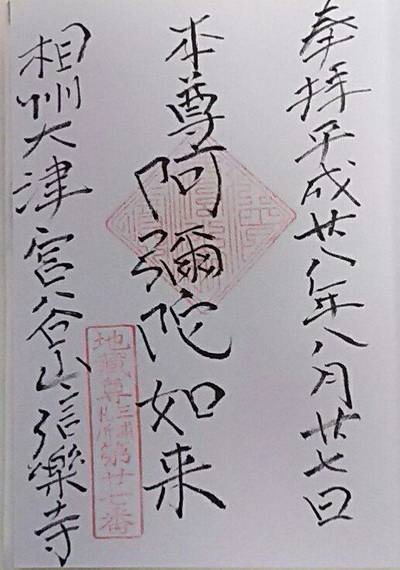 奉拝平成廿八年八月廿七日
本尊阿彌陀如来
相州大津宮谷山信樂寺
地蔵尊三浦札所第廿七番